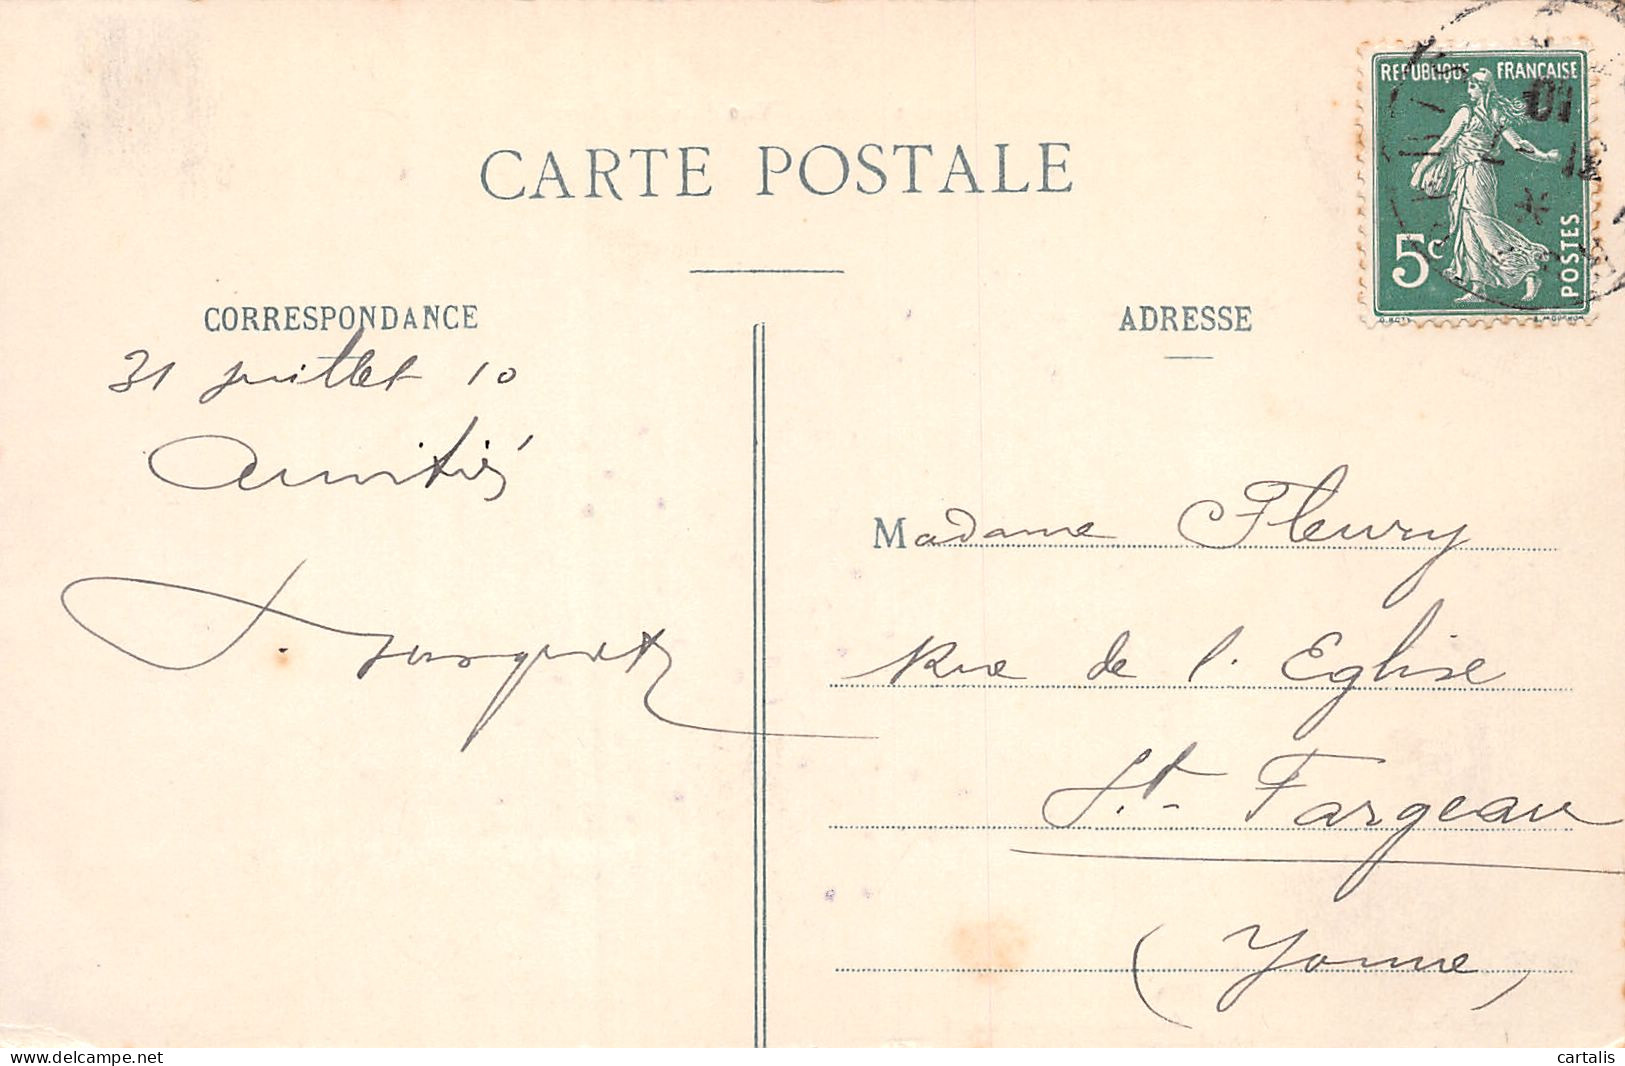 CARTE POSTALE
REPUBLIQUE FRANÇAISE
5c
POSTES
CORRESPONDANCE
31 juillet 10
Amitiés
ADRESSE
Madame Fleury
Rue de l'Eglise
St. Fargeau
(Yonne)
www.delcampe.net
cartalis